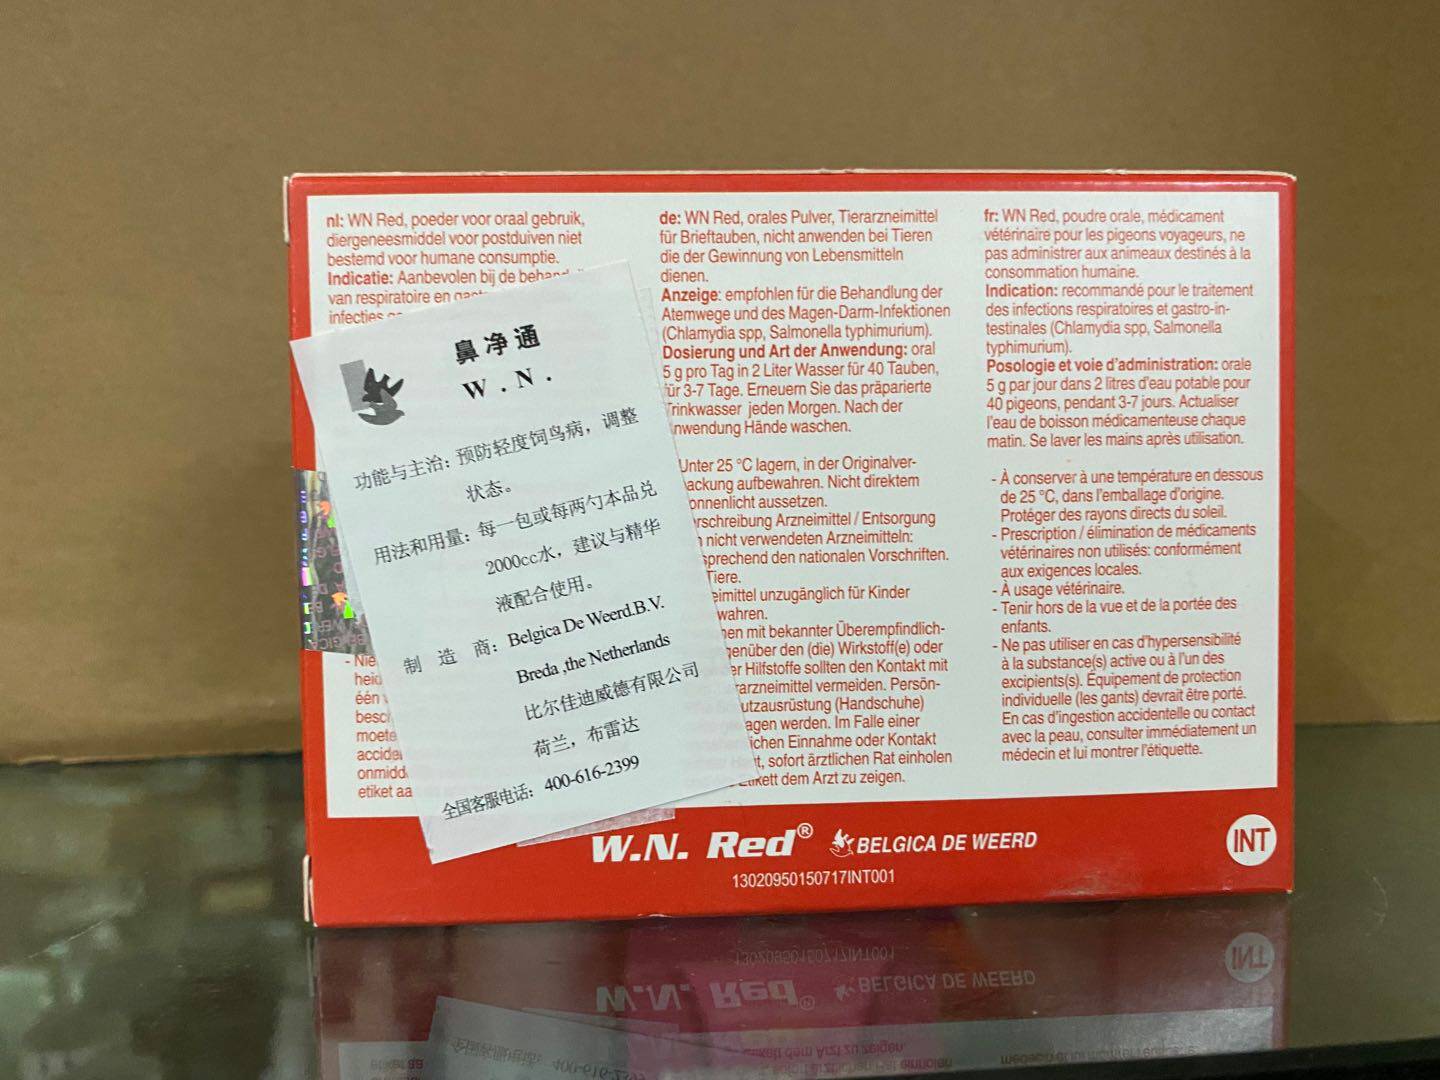 nl: WN Red, poeder voor oraal gebruik,
diergeneesmiddel voor postduiven niet
bestemd voor humane consumptie.
Indicatie: Aanbevolen bij de
van respiratoire en
infecties
- Nie
heid
één
besch
moete
accide
onmidd
etiket aa
鼻净通
W.N.
功能与主治：预防轻度饲鸟病，调整
状态。
用法和用量：每一包或每两勺本品兑
2000cc水，建议与精华
液配合使用。
制 造 商：Belgica De Weerd.B.V.
Breda ,the Netherlands
比尔佳迪威德有限公司
荷兰，布雷达
全国客服电话：400-616-2399
de: WN Red, orales Pulver, Tierarzneimittel
für Brieftauben, nicht anwenden bei Tieren
die der Gewinnung von Lebensmitteln
dienen.
Anzeige: empfohlen für die Behandlung der
Atemwege und des Magen-Darm-Infektionen
(Chlamydia spp, Salmonella typhimurium).
Dosierung und Art der Anwendung: oral
5 g pro Tag in 2 Liter Wasser für 40 Tauben,
für 3-7 Tage. Erneuern Sie das präparierte
Trinkwasser jeden Morgen. Nach der
nwendung Hände waschen.
Unter 25 °C lagern, in der Originalver-
ackung aufbewahren. Nicht direktem
onnenlicht aussetzen.
rschreibung Arzneimittel / Entsorgung
nicht verwendeten Arzneimitteln:
sprechend den nationalen Vorschriften.
Tiere.
eimittel unzugänglich für Kinder
wahren.
en mit bekannter Überempfindlich-
genüber den (die) Wirkstoff(e) oder
er Hilfstoffe sollten den Kontakt mit
rarzneimittel vermeiden. Persön-
utzausrüstung (Handschuhe)
agen werden. Im Falle einer
ichen Einnahme oder Kontakt
t, sofort ärztlichen Rat einholen
ikett dem Arzt zu zeigen.
fr: WN Red, poudre orale, médicament
vétérinaire pour les pigeons voyageurs, ne
pas administrer aux animeaux destinés à la
consommation humaine.
Indication: recommandé pour le traitement
des infections respiratoires et gastro-in-
testinales (Chlamydia spp, Salmonella
typhimurium).
Posologie et voie d'administration: orale
5 g par jour dans 2 litres d'eau potable pour
40 pigeons, pendant 3-7 jours. Actualiser
l'eau de boisson médicamenteuse chaque
matin. Se laver les mains après utilisation.
- À conserver à une température en dessous
de 25 °C, dans l'emballage d'origine.
Protéger des rayons directs du soleil.
- Prescription / élimination de médicaments
vétérinaires non utilisés: conformément
aux exigences locales.
- À usage vétérinaire.
- Tenir hors de la vue et de la portée des
enfants.
- Ne pas utiliser en cas d'hypersensibilité
à la substance(s) active ou à l'un des
excipients(s). Équipement de protection
individuelle (les gants) devrait être porté.
En cas d'ingestion accidentelle ou contact
avec la peau, consulter immédiatement un
médecin et lui montrer l'étiquette.
W.N. Red® BELGICA DE WEERD
13020950150717INT001
INT